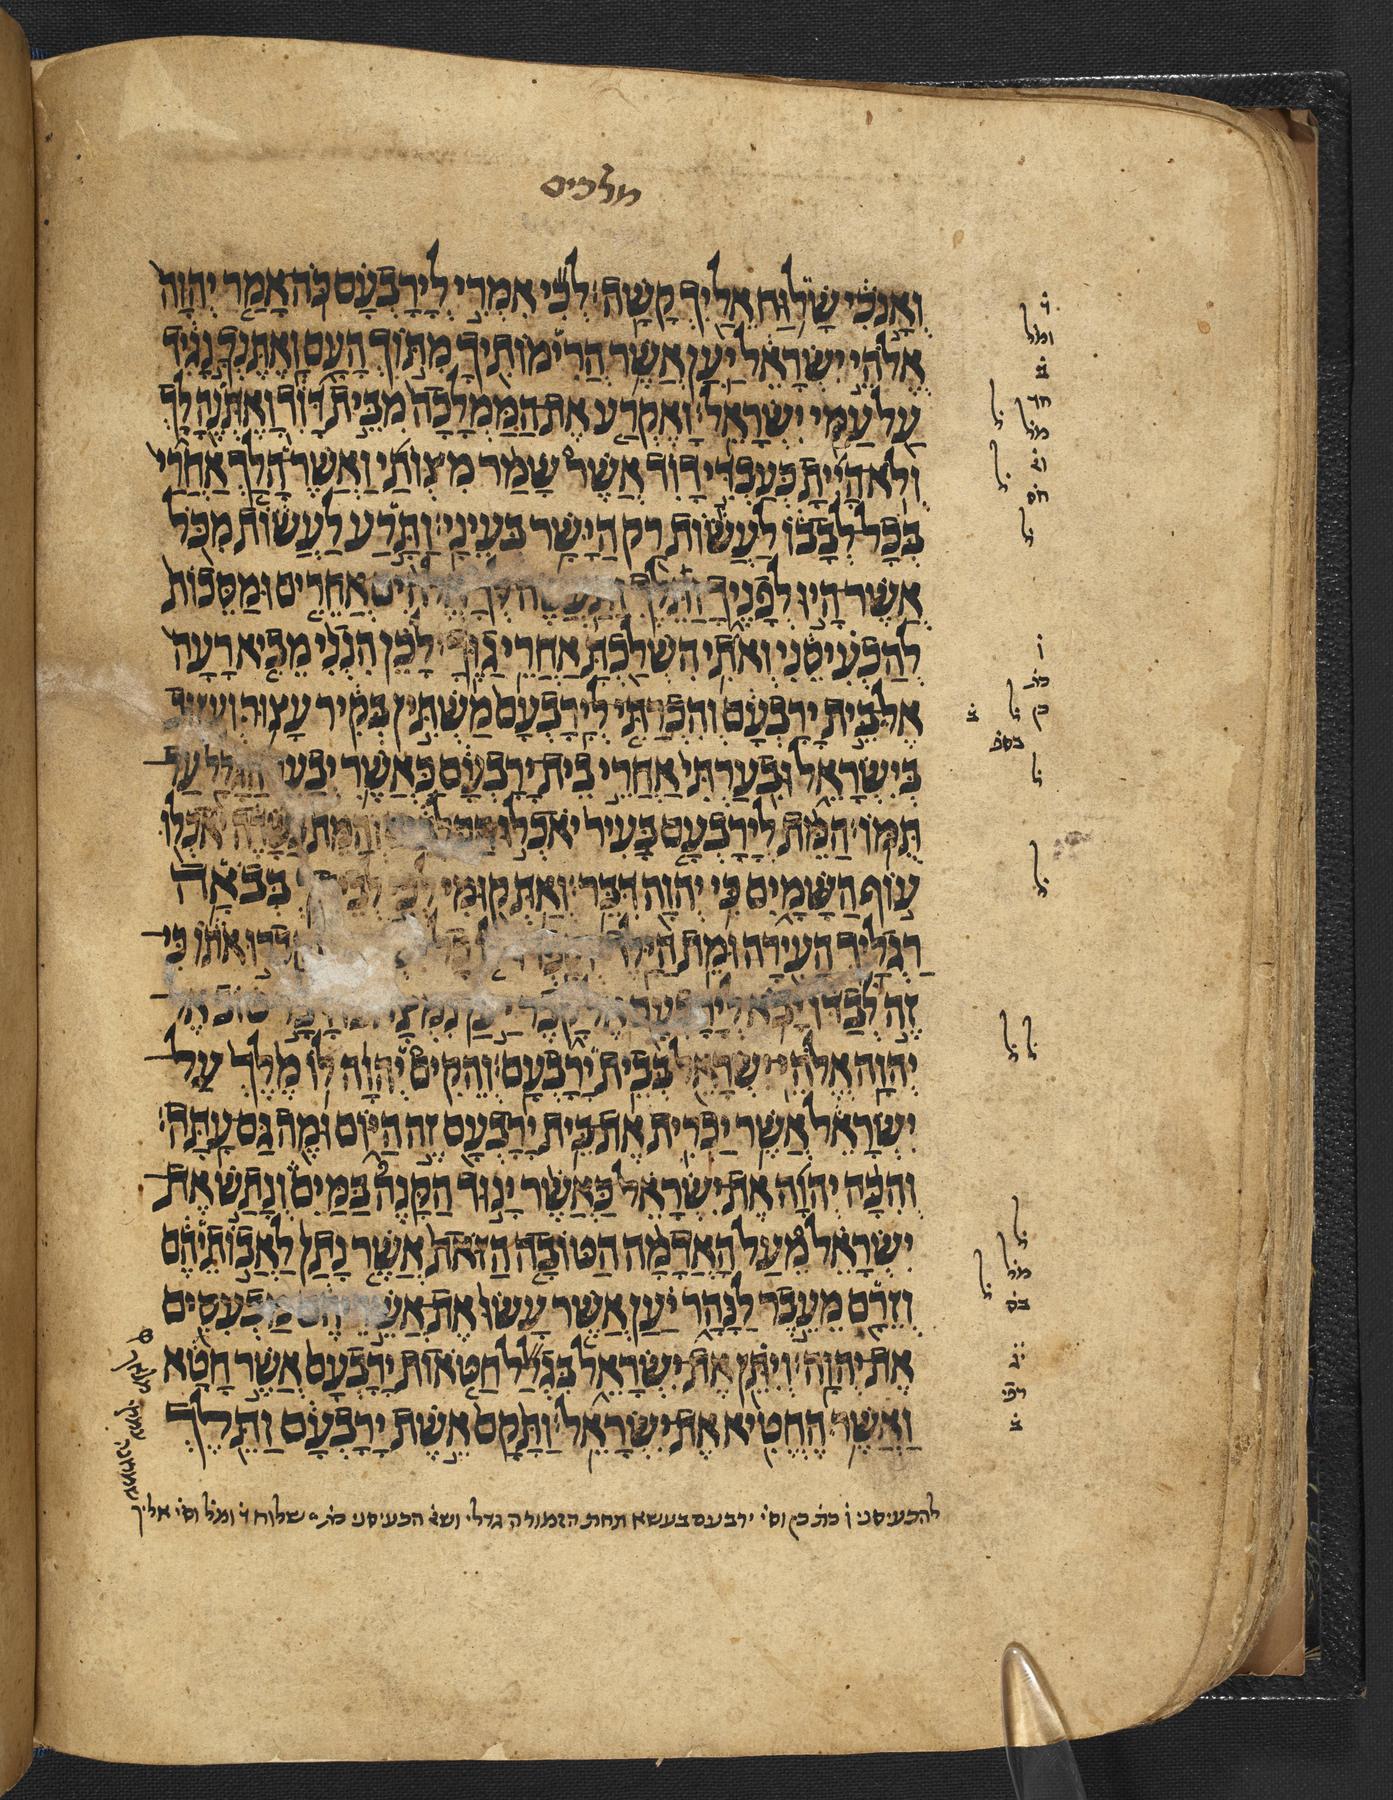 מלכים
וְאָנֹכִי שָׁלוּחַ אֵלַיִךְ קָשָׁה׃ לְכִי אִמְרִי לְיָרָבְעָם כֹּה אָמַר יְהוָה
אֱלֹהֵי יִשְׂרָאֵל יַעַן אֲשֶׁר הֲרִימוֹתִיךָ מִתּוֹךְ הָעָם וָאֶתֶּנְךָ נָגִיד
עַל עַמִּי יִשְׂרָאֵל׃ וָאֶקְרַע אֶת הַמַּמְלָכָה מִבֵּית דָּוִד וָאֶתְּנֶהָ לָךְ
וְלֹא הָיִיתָ כְּעַבְדִּי דָוִד אֲשֶׁר שָׁמַר מִצְוֹתַי וַאֲשֶׁר הָלַךְ אַחֲרַי
בְּכָל לְבָבוֹ לַעֲשׂוֹת רַק הַיָּשָׁר בְּעֵינָי׃ וַתָּרַע לַעֲשׂוֹת מִכֹּל
אֲשֶׁר הָיוּ לְפָנֶיךָ וַתֵּלֶךְ וַתַּעֲשֶׂה לְּךָ אֱלֹהִים אֲחֵרִים וּמַסֵּכוֹת
לְהַכְעִיסֵנִי וְאֹתִי הִשְׁלַכְתָּ אַחֲרֵי גַוֶּךָ׃ לָכֵן הִנְנִי מֵבִיא רָעָה
אֶל בֵּית יָרָבְעָם וְהִכְרַתִּי לְיָרָבְעָם מַשְׁתִּין בְּקִיר עָצוּר וְעָזוּב
בְּיִשְׂרָאֵל וּבִעַרְתִּי אַחֲרֵי בֵית יָרָבְעָם כַּאֲשֶׁר יְבַעֵר הַגָּלָל עַד
תֻּמּוֹ׃ הַמֵּת לְיָרָבְעָם בָּעִיר יֹאכְלוּ הַכְּלָבִים וְהַמֵּת בַּשָּׂדֶה יֹאכְלוּ
עוֹף הַשָּׁמָיִם כִּי יְהוָה דִּבֵּר׃ וְאַתְּ קוּמִי לְכִי לְבֵיתֵךְ בְּבֹאָה
רַגְלַיִךְ הָעִירָה וּמֵת הַיָּלֶד׃ וְקָבְרוּ אֹתוֹ כִּי
זֶה לְבַדּוֹ יָבֹא לְיָרָבְעָם אֶל קָבֶר יַעַן נִמְצָא בוֹ דָּבָר טוֹב אֶל
יְהוָה אֱלֹהֵי יִשְׂרָאֵל בְּבֵית יָרָבְעָם׃ וְהֵקִים יְהוָה לוֹ מֶלֶךְ עַל
יִשְׂרָאֵל אֲשֶׁר יַכְרִית אֶת בֵּית יָרָבְעָם זֶה הַיּוֹם וּמֶה גַּם עָתָּה׃
וְהִכָּה יְהוָה אֶת יִשְׂרָאֵל כַּאֲשֶׁר יָנוּד הַקָּנֶה בַּמַּיִם וְנָתַשׁ אֶת
יִשְׂרָאֵל מֵעַל הָאֲדָמָה הַטּוֹבָה הַזֹּאת אֲשֶׁר נָתַן לַאֲבוֹתֵיהֶם
וְזֵרָם מֵעֵבֶר לַנָּהָר יַעַן אֲשֶׁר עָשׂוּ אֶת אֲשֵׁרֵיהֶם מַכְעִסִים
אֶת יְהוָה׃ וְיִתֵּן אֶת יִשְׂרָאֵל בִּגְלַל חַטֹּאות יָרָבְעָם אֲשֶׁר חָטָא
וַאֲשֶׁר הֶחֱטִיא אֶת יִשְׂרָאֵל׃ וַתָּקָם אֵשֶׁת יָרָבְעָם וַתֵּלֶךְ
להכעיסני ו כת כן וסי ירבעם בעשא תחת הזמורה גדלי ושא הכעיסני כת שלוח ד ומל וסי אליך